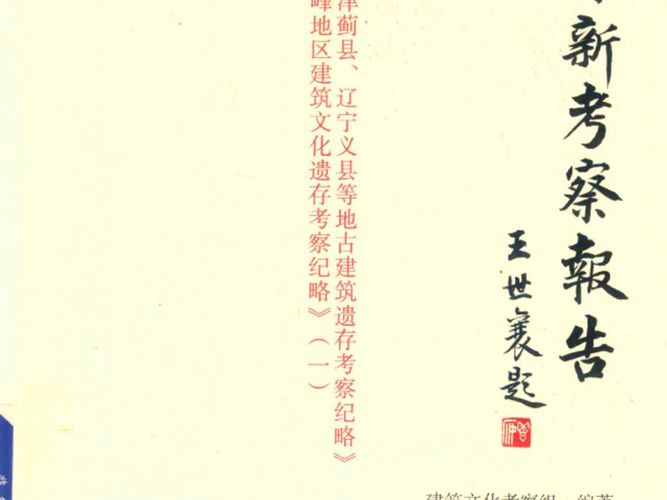 新考察報告
王世襄题
津蓟县、辽宁义县等地古建筑遗存考察纪略》
峰地区建筑文化遗存考察纪略》（一）
建筑文化考察组 编著